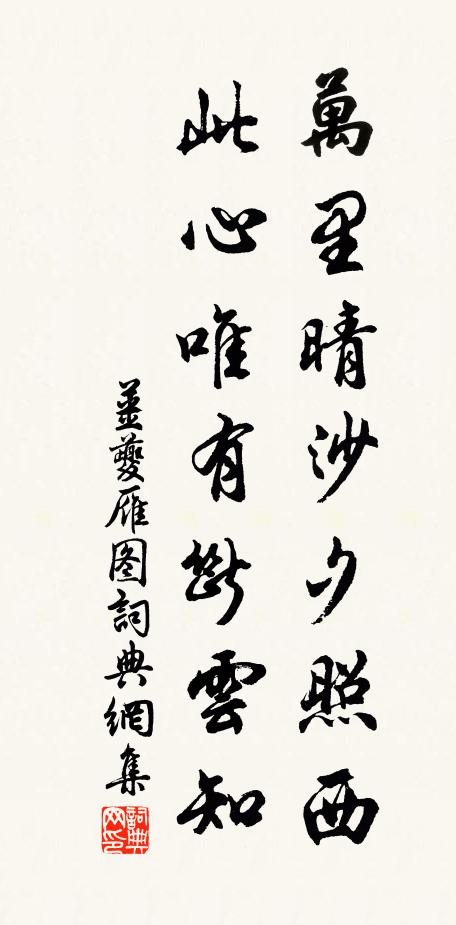 萬里晴沙夕照西
此心唯有斷雲知
姜夔雁图詞典網集
詞典网印